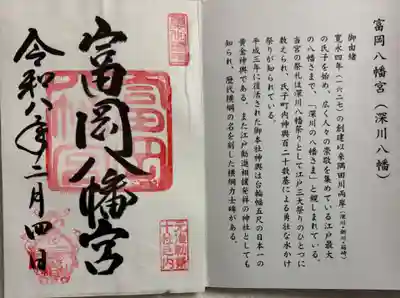 富岡八幡宮(深川八幡)
御由緒
寛永四年(一六二七)の創建以来隅田川両岸(深川・新川・箱崎)
の氏子を始め、広く人々の崇敬を集めている江戸最大
の八幡さまで、「深川の八幡さま」と親しまれている。
当宮の祭礼は深川八幡祭りとして江戸三大祭りのひとつに
数えられ、氏子町内神輿百二十数基による勇壮な水かけ
祭りが知られている。
平成三年に復活された御本社神輿は台輪幅五尺の日本一の
黄金神輿である。また江戸勧進相撲発祥の神社としても
知られ、歴代横綱の名を刻した横綱力士碑がある。
富岡八幡宮
令和八年二月四日